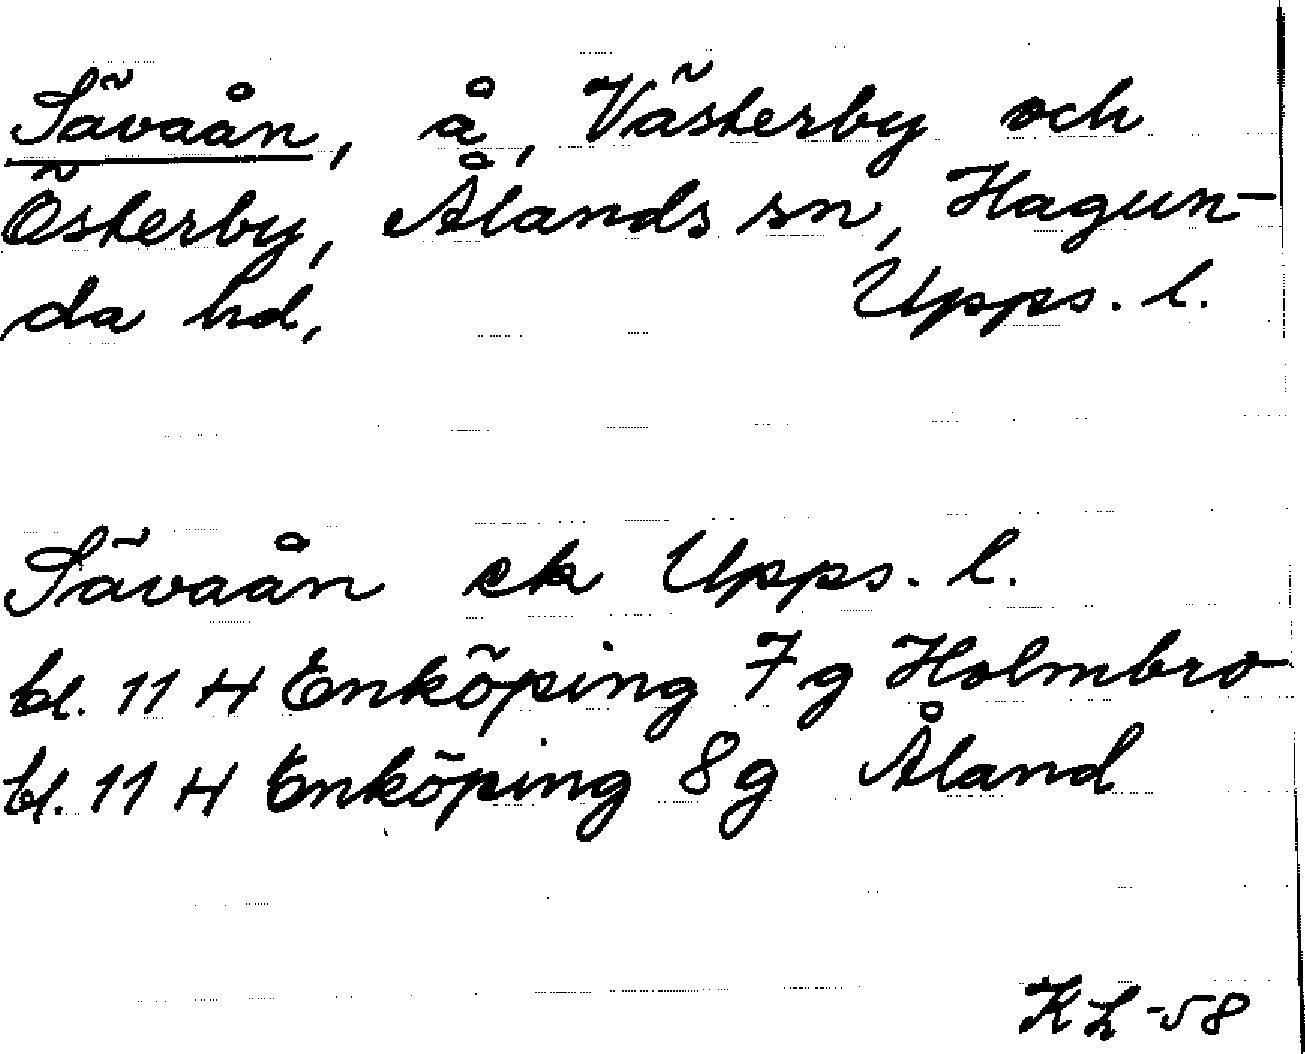 Sävaån, å, Västerby och
Österby, Ålands sn, Hagun-
da hd, Upps. l.
Sävaån ek Upps. l.
bl. 11 H Enköping 7 g Holmbro
bl. 11 H Enköping 8 g Åland
KL -58